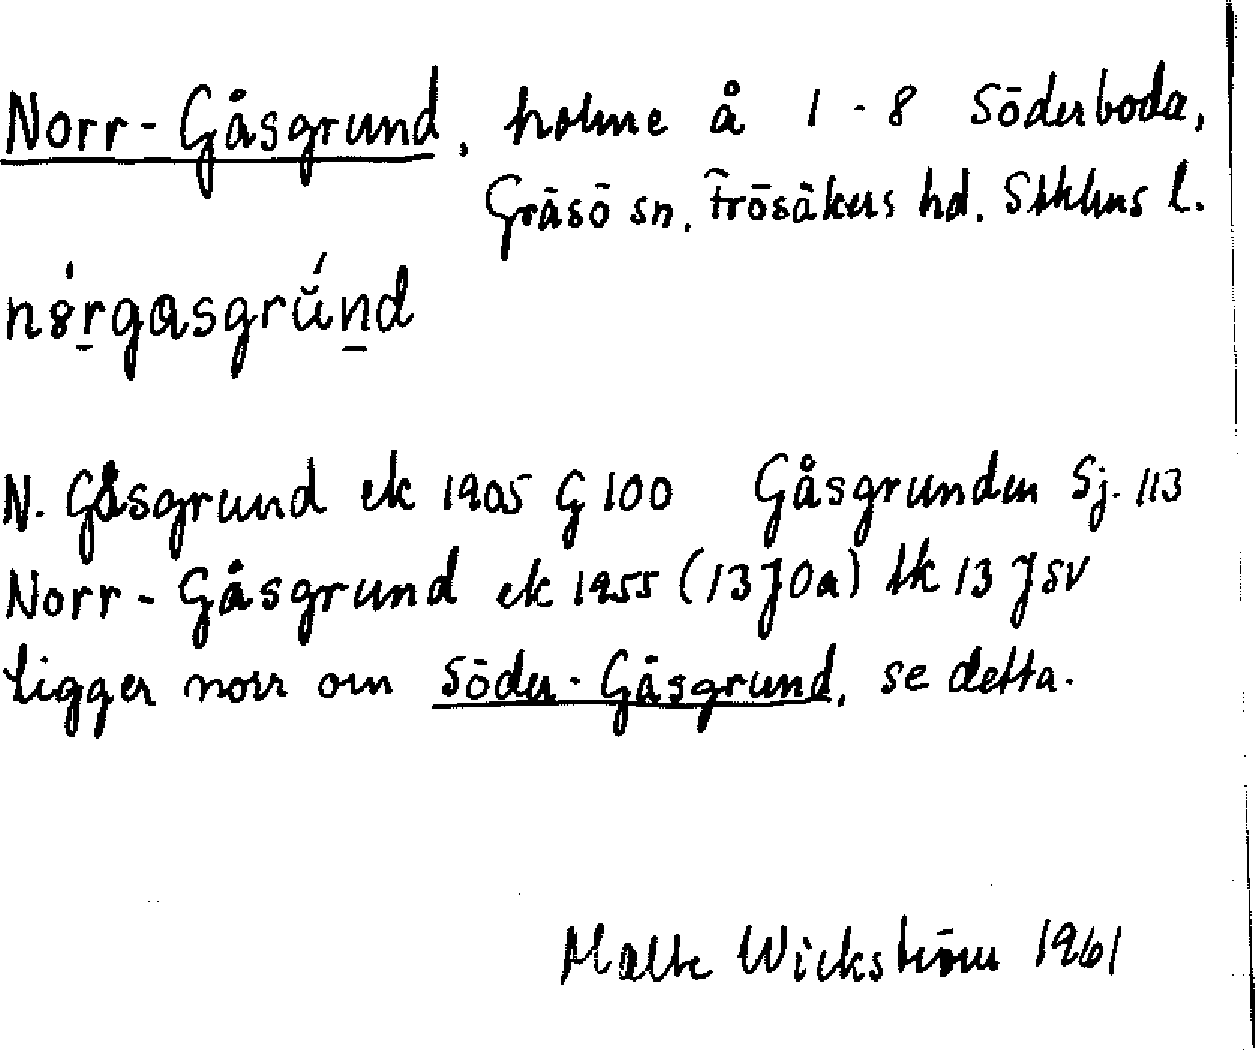 Norr-Gåsgrund, holme å 1-8 Söderboda,
Gräsö sn. Frösåkers hd. Sthlms l.
N. Gåsgrund ek 1905 G 100 Gåsgrunden Sj. 113
Norr-Gåsgrund ek 1955 (13J0a) tk 13 J SV
Ligger norr om Söder-Gåsgrund, se detta.
Malte Wickström 1961